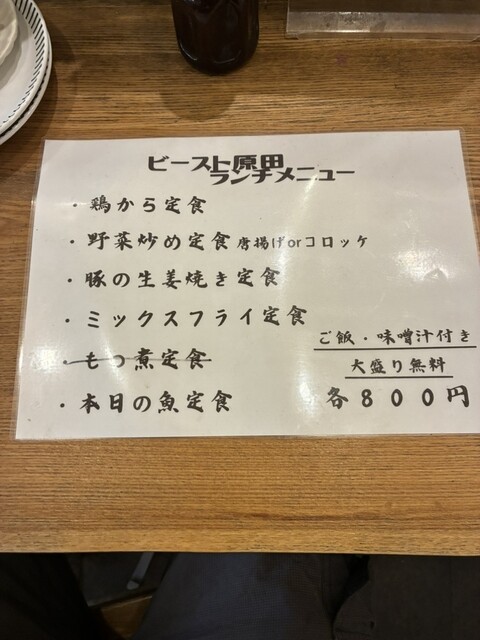 ビースト原田
ランチメニュー
・鶏から定食
・野菜炒め定食 唐揚げorコロッケ
・豚の生姜焼き定食
・ミックスフライ定食
・もつ煮定食
・本日の魚定食
ご飯・味噌汁付き
大盛り無料
各８００円